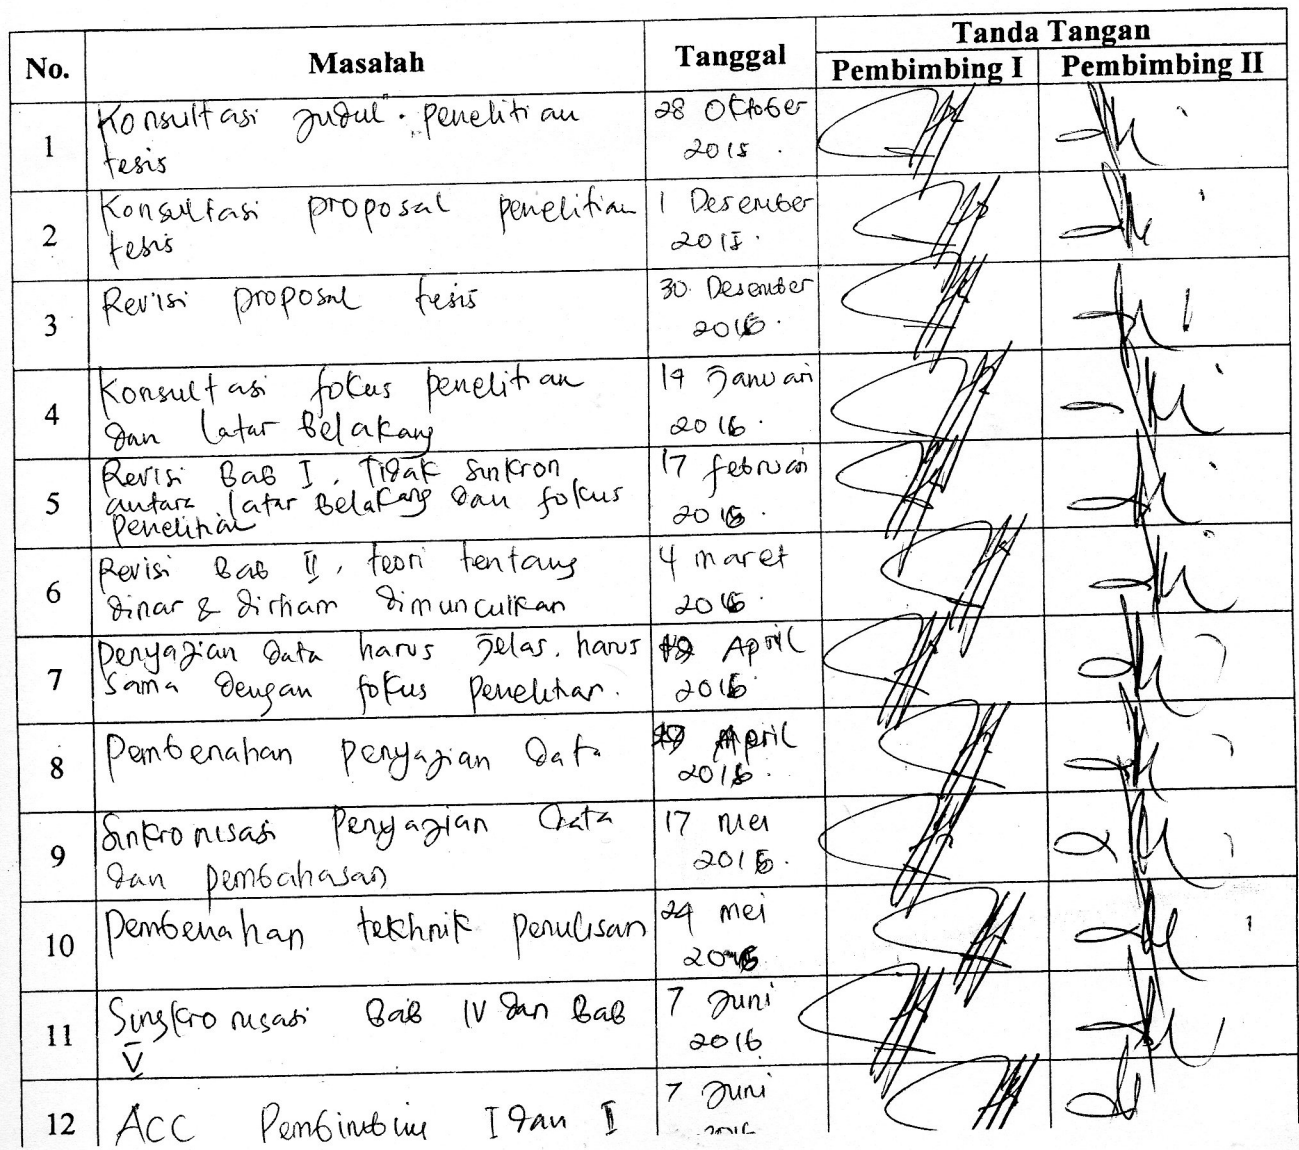 No.
Masalah
Tanggal
Tanda Tangan
Pembimbing I
Pembimbing II
1
Konsultasi judul penelitian
tesis
28 Oktober
2015
2
Konsultasi proposal penelitian
tesis
1 Desember
2015
3
Revisi proposal tesis
30 Desember
4
Konsultasi fokus penelitian
dan latar belakang
Januari
2016
5
Revisi Bab I, Tidak sinkron
antara latar belakang dan fokus
penelitian
17 februari
2016
6
Revisi Bab II, teori tentang
dinar & dirham dimunculkan
4 maret
2016
7
penyajian data harus jelas, harus
sama dengan fokus penelitian.
April
2016
8
Pembenahan penyajian data
April
2016
9
Sinkronisasi Penyajian data
dan pembahasan
17 mei
2016
10
Pembenahan tekhnik penulisan
24 mei
11
Singkronisasi Bab IV dan Bab
V
7 Juni
2016
12
ACC Pembimbing I dan
7 Juni
2016